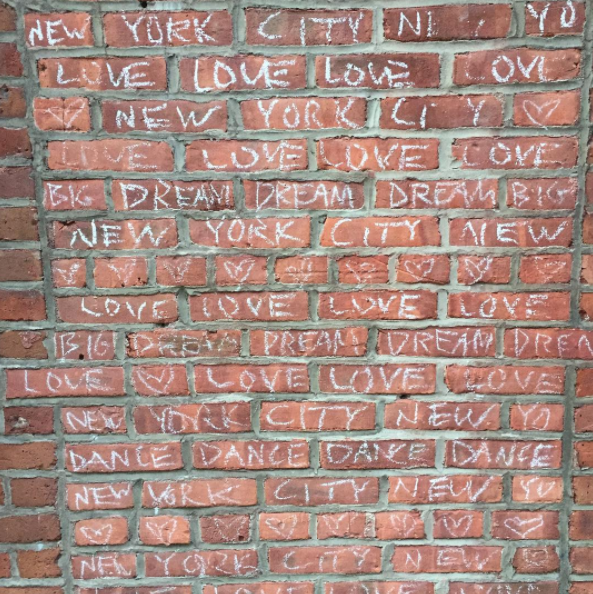 NEW YORK CITY YO
LOVE LOVE LOVE LOVE
NEW YORK CITY
LOVE LOVE LOVE LOVE
BIG DREAM DREAM DREAM BIG
NEW YORK CITY NEW
LOVE LOVE LOVE LOVE
BIG DREAM DREAM DREAM DREA
LOVE LOVE LOVE LOVE
NEW YORK CITY NEW YO
DANCE DANCE DANCE DANCE
NEW YORK CITY NEW YO
NEW YORK CITY NEW